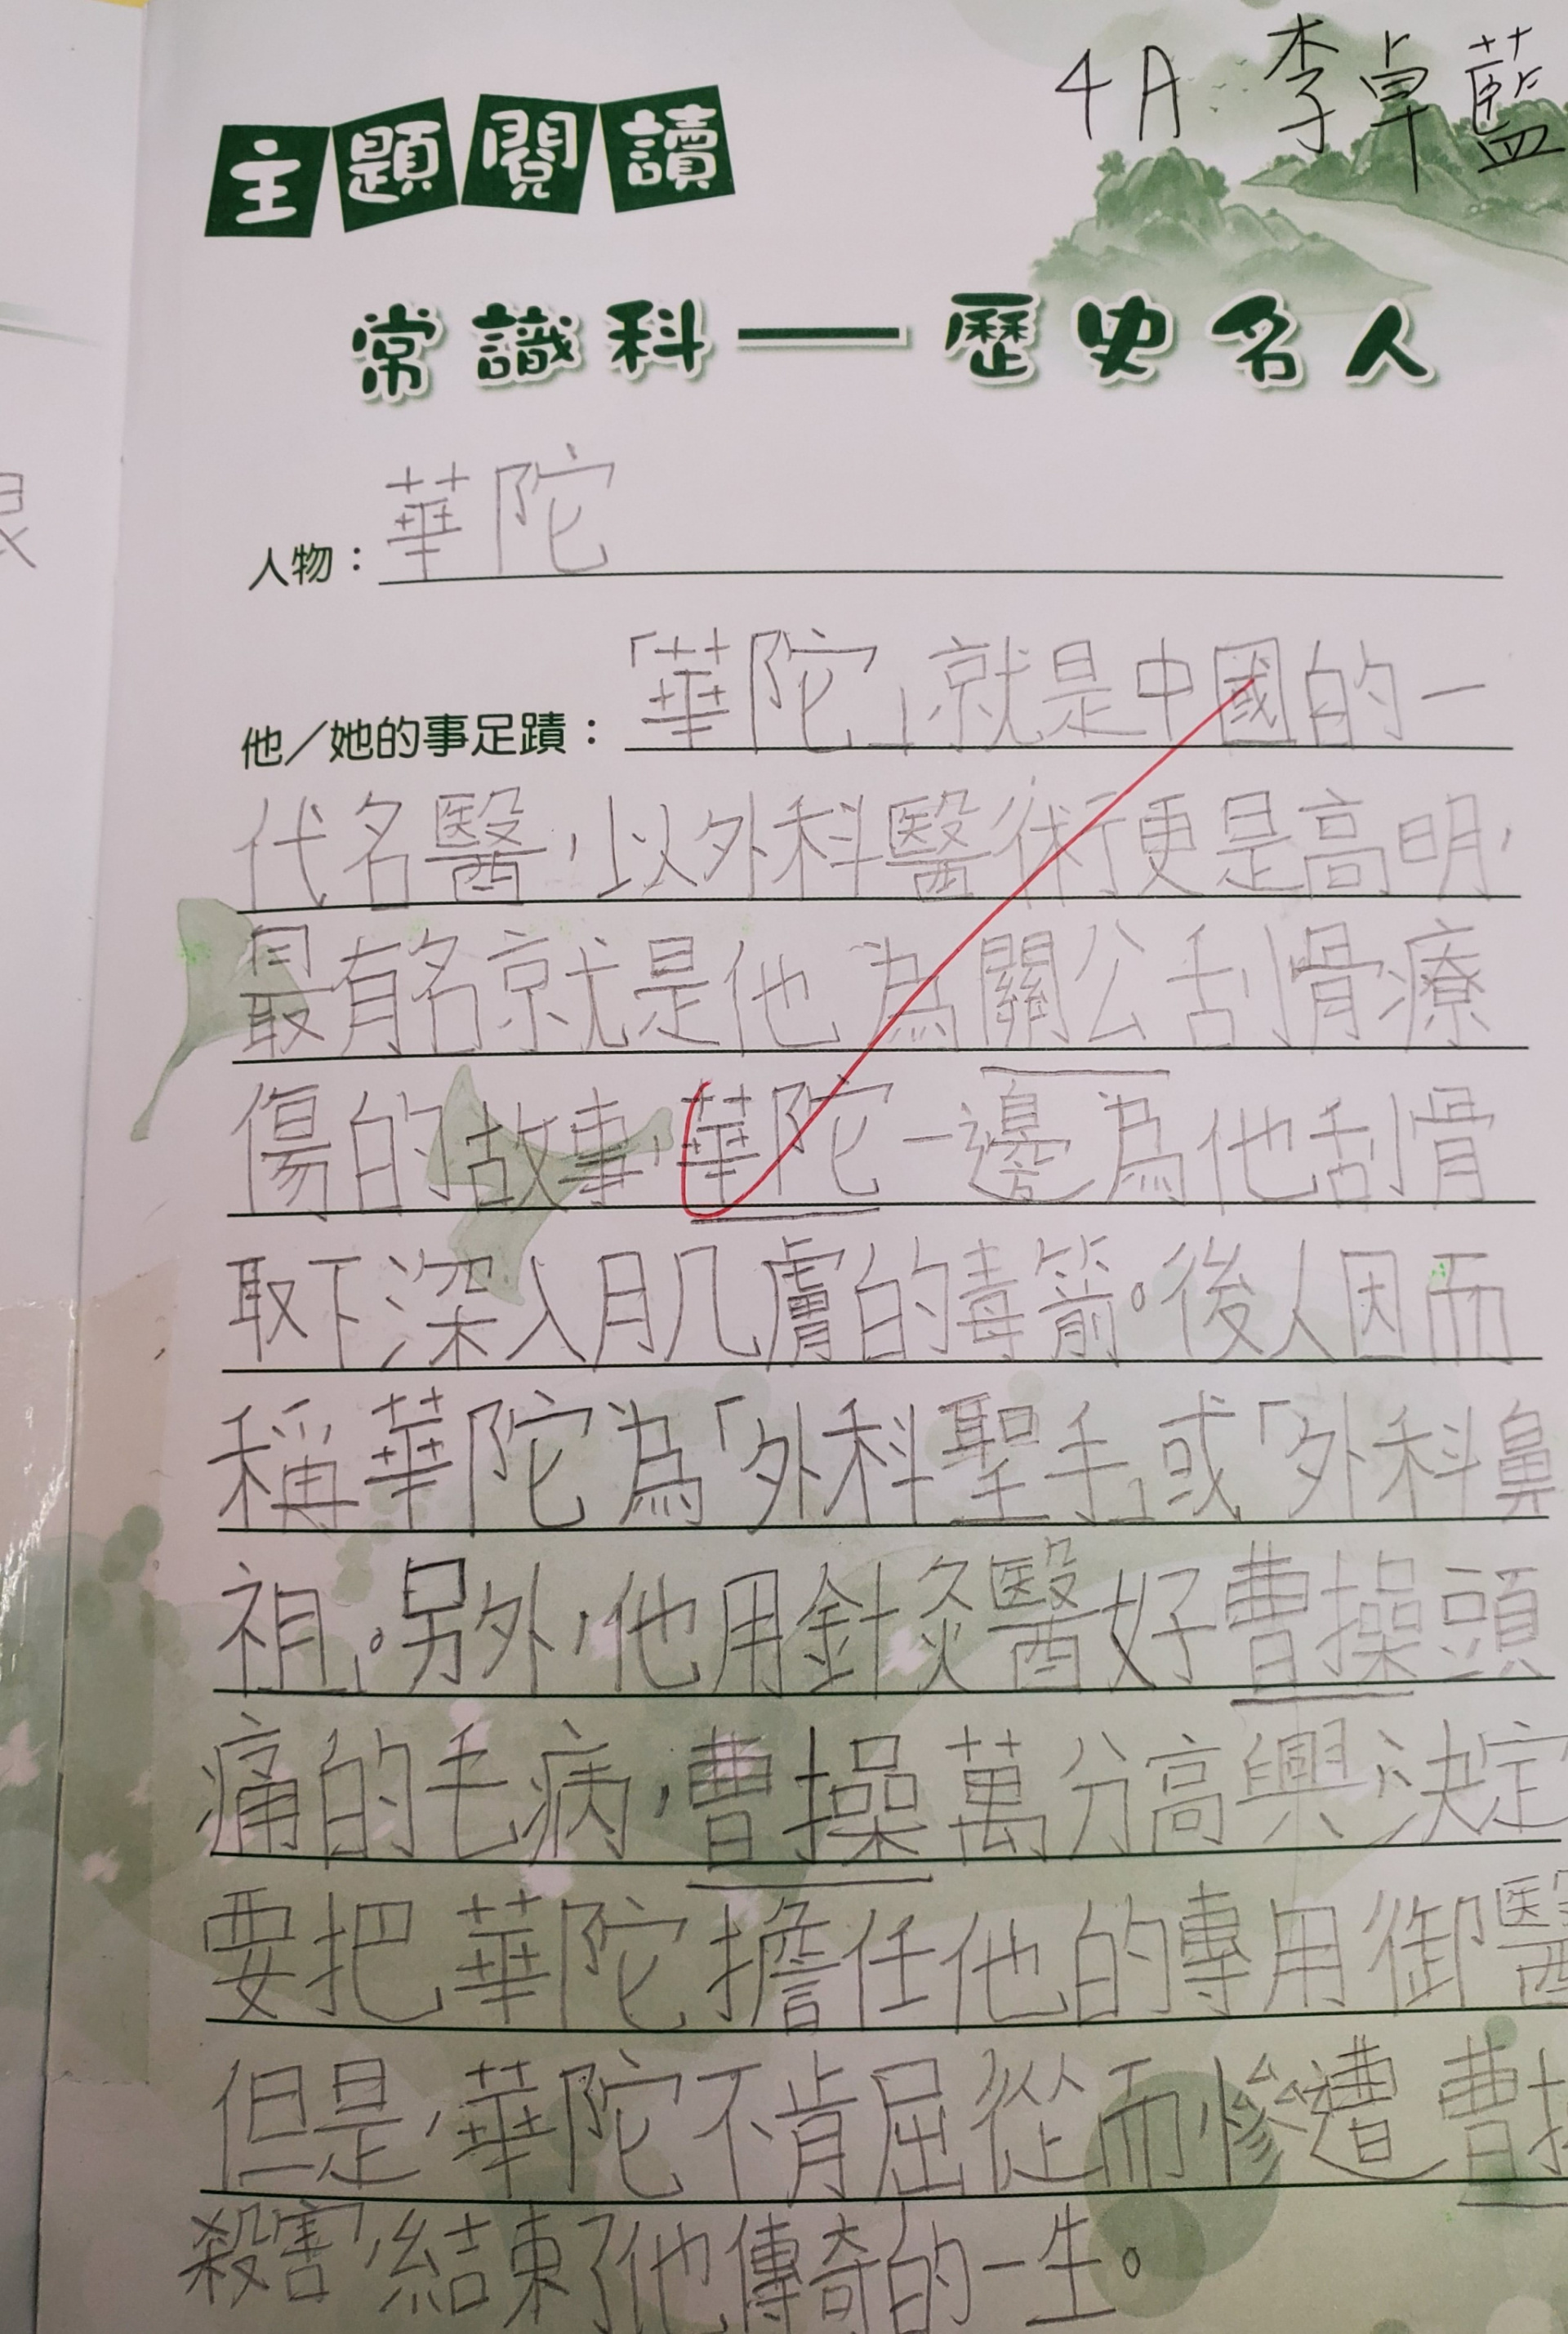 4A 李卓藍
主題閱讀
常識科——歷史名人
人物：華陀
他／她的事足蹟：「華陀」，就是中國的一
代名醫，以外科醫術更是高明，
最有名就是他為關公刮骨療
傷的故事，華陀一邊為他刮骨
取下深入肌膚的毒箭。後人因而
稱華陀為「外科聖手」或「外科鼻
祖」。另外，他用針灸醫好曹操頭
痛的毛病，曹操萬分高興，決定
要把華陀擔任他的專用御醫
但是，華陀不肯屈從而慘遭曹操
殺害，結束了他傳奇的一生。